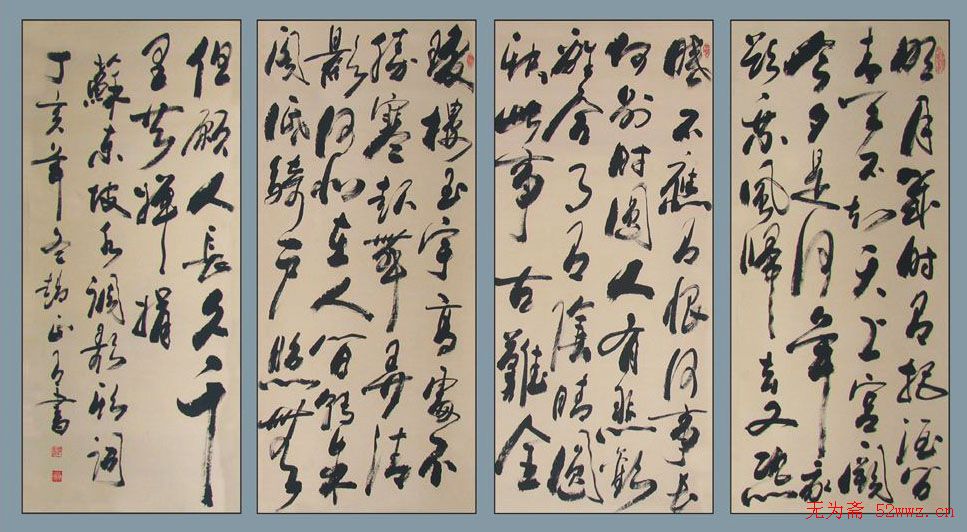 明月幾时有把酒问
青天不知天上宫阙
今夕是何年我
欲乘风归去又恐
眠不應有恨何事长
向别时圆人有悲歡
離合月有陰晴圆
缺此事古難全
瓊樓玉宇高處不
勝寒起舞弄清
影何似在人间转朱
阁低绮户照無
但願人長久千
里共婵娟
蘇東坡水調歌頭詞
丁亥年冬 书
无为斋 52wwz.cn